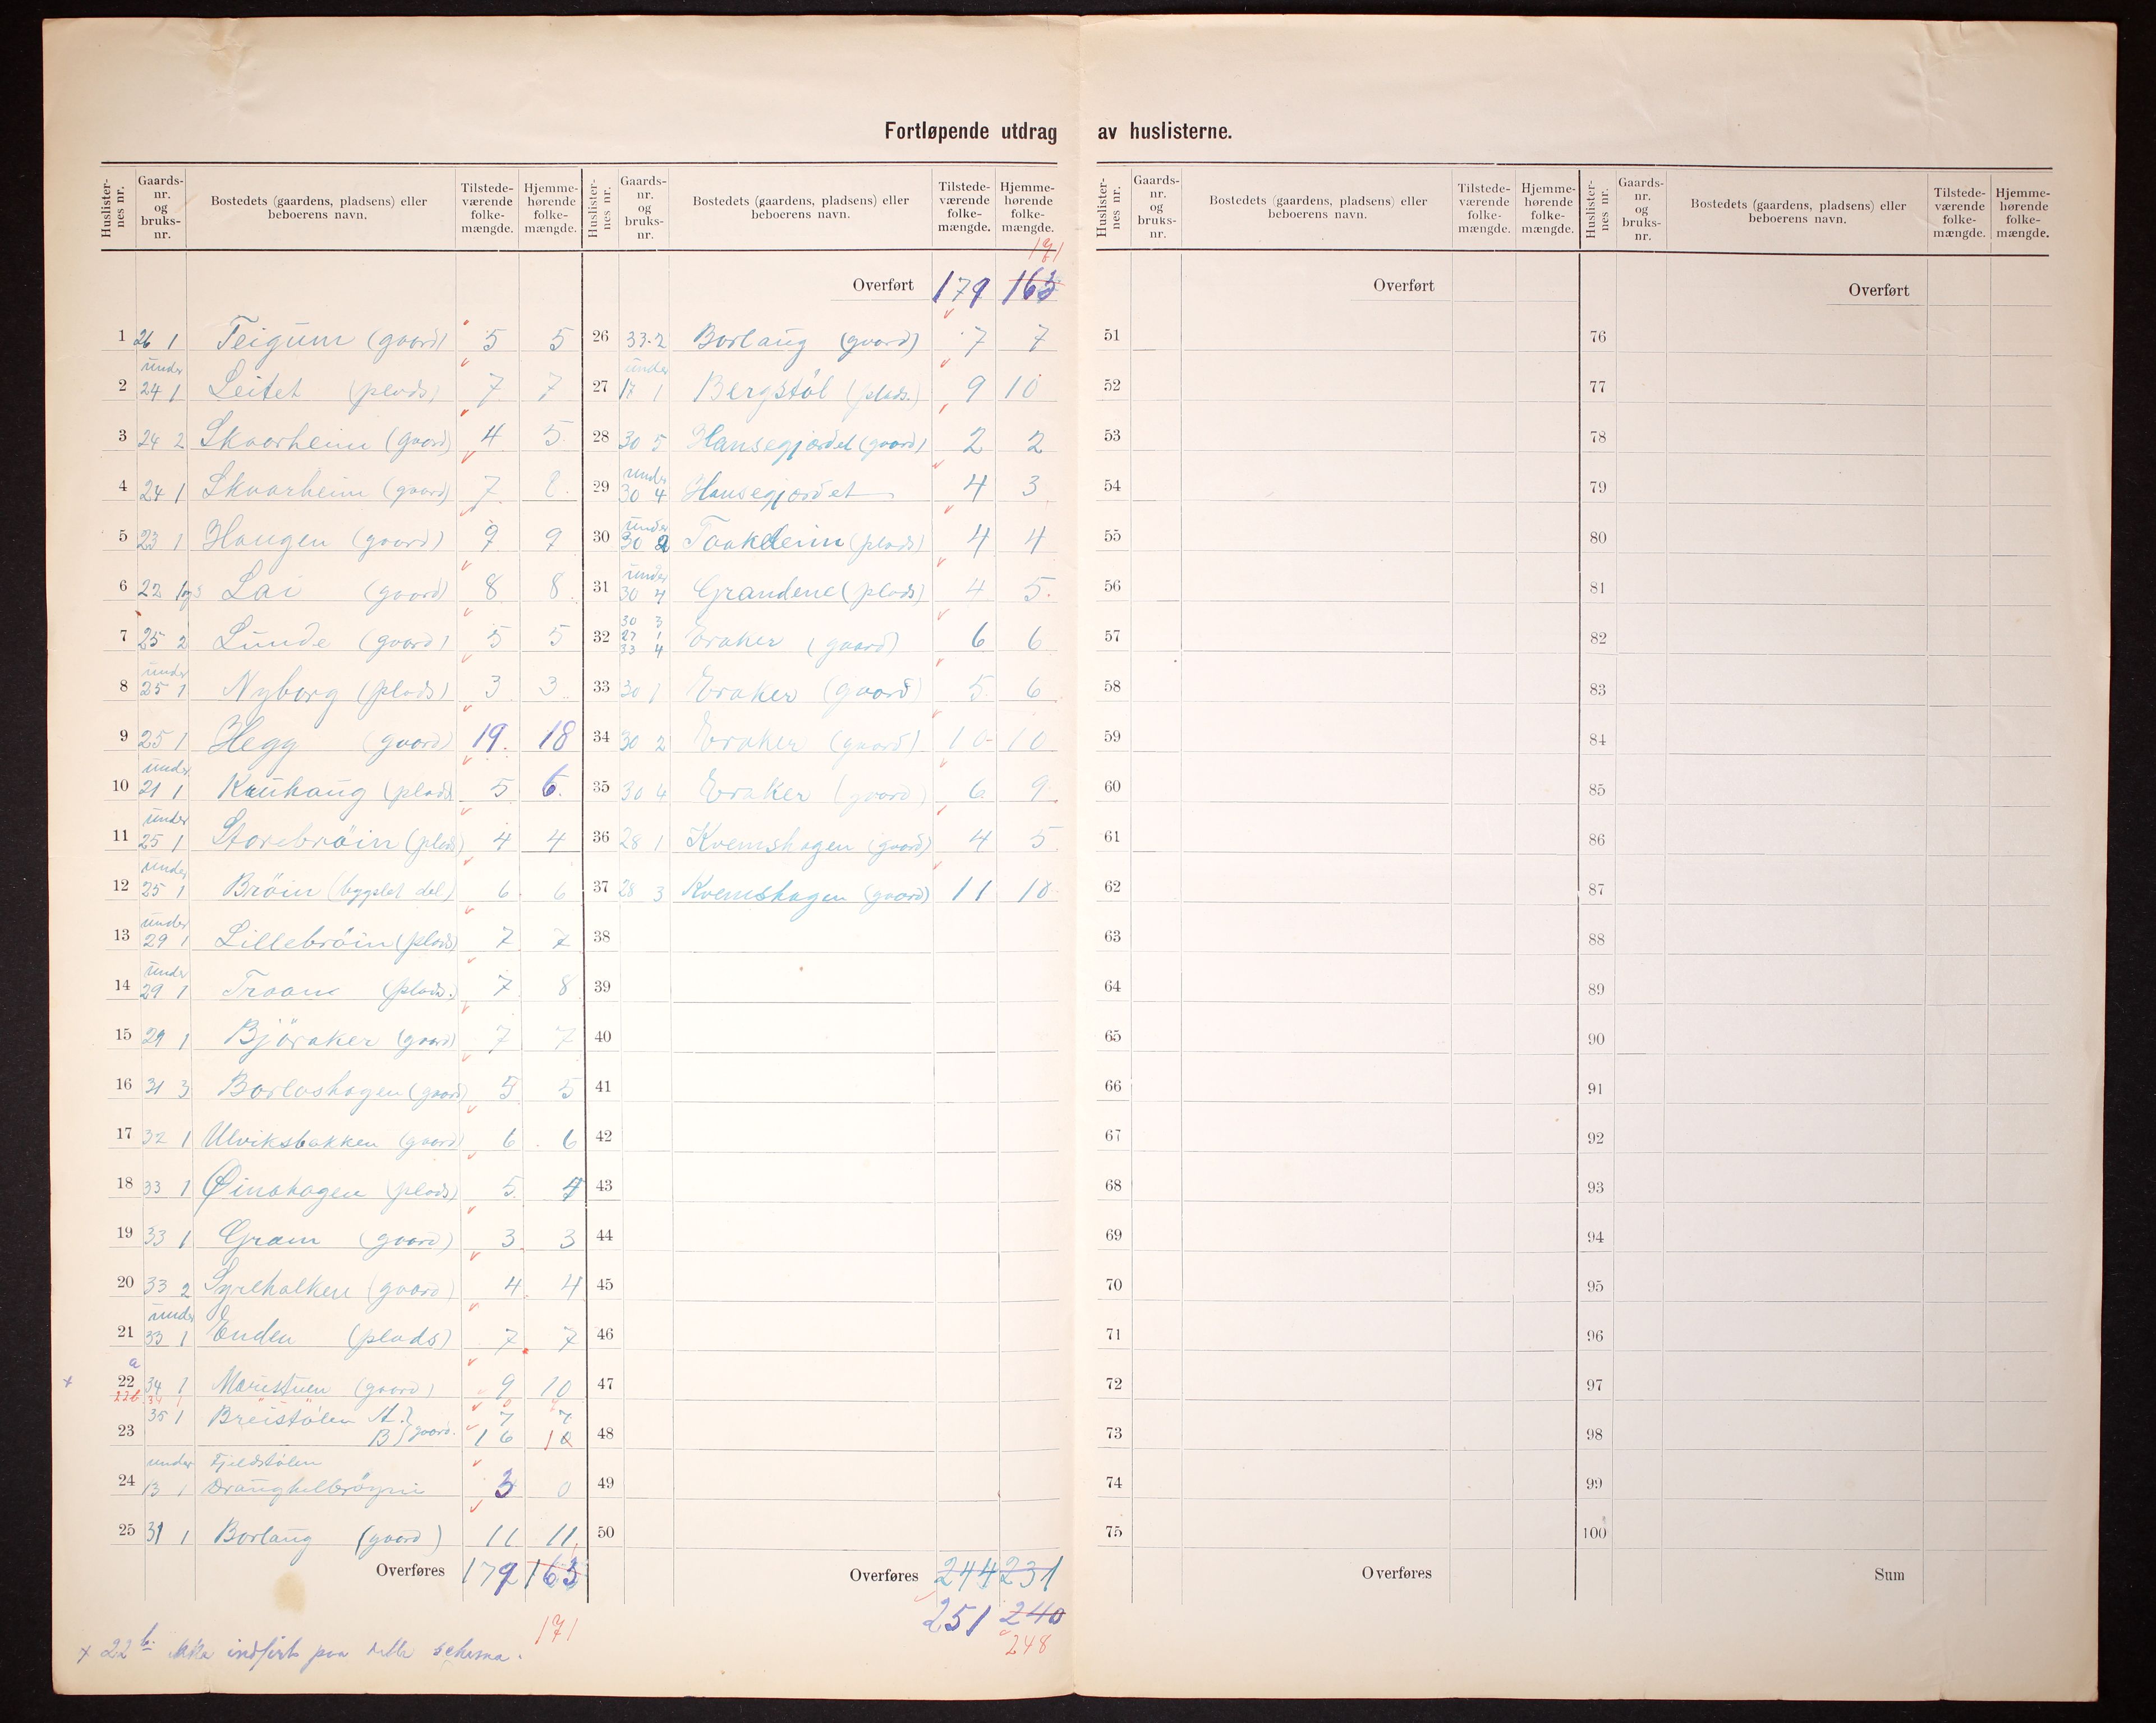 Fortløpende utdrag av huslisterne.
Huslisternes nr. Gaards-nr. og bruks-nr. Bostedets (gaardens, pladsens) eller beboerens navn. Tilstedeværende folkemængde. Hjemmehørende folkemængde.
1 26 1 Teigum (gaard) 5 5
2 under 24 1 Leitet (plads) 7 7
3 24 2 Skaarheim (gaard) 4 5
4 24 1 Skaarheim (gaard) 7 8
5 23 1 Haugen (gaard) 9 9
6 22 1 og 3 Lai (gaard) 8 8
7 25 2 Lunde (gaard) 5 5
8 under 25 1 Nyborg (plads) 3 3
9 25 1 Hegg (gaard) 19 18
10 under 21 1 Kauhaug (plads) 5 6
11 under 25 1 Storebröin (plads) 4 4
12 under 25 1 Bröin (bygslet del) 6 6
13 under 29 1 Lillebröin (plads) 7 7
14 under 29 1 Traane (plads.) 7 8
15 29 1 Björaker (gaard) 7 7
16 31 3 Borloshagen (gaard) 5 5
17 32 1 Ulviksbakken (gaard) 6 6
18 33 1 Øinahagen (plads) 5 4
19 33 1 Gram (gaard) 3 3
20 33 2 (gaard) 4 4
21 under 33 1 Enden (plads) 7 7
22 a 34 1 Maristuen (gaard) 9 10
22b 34 1
23 35 1 Breistölen A. 7 7
B gaard. 16 10
24 under 13 1 Fjeldstölen 3 0
25 31 1 Borlaug (gaard) 11 11
Overføres 179 163
171
+ 22 b ikke indført paa dette schema.
Huslisternes nr. Gaards-nr. og bruks-nr. Bostedets (gaardens, pladsens) eller beboerens navn. Tilstedeværende folkemængde. Hjemmehørende folkemængde.
171
Overført 179 163
26 33 2 Borlaug (gaard) 7 7
27 under 17 1 Bergstöl (plads.) 9 10
28 30 5 Hansegjordet (gaard) 2 2
29 under 30 4 Hansegjordet 4 3
30 under 30 2 Taakeheim (plads) 4 4
31 under 30 4 Grandene (plads) 4 5
32 30 3 27 1 33 4 Eraker (gaard) 6 6
33 30 1 Eraker (gaard) 5 6
34 30 2 Eraker (gaard) 10 10
35 30 4 Eraker (gaard) 6 9
36 28 1 Kvemshagen (gaard) 4 5
37 28 3 Kvemshagen (gaard) 11 10
38
39
40
41
42
43
44
45
46
47
48
49
50
Overføres 244 231
251 240
248
Huslisternes nr. Gaards-nr. og bruks-nr. Bostedets (gaardens, pladsens) eller beboerens navn. Tilstedeværende folkemængde. Hjemmehørende folkemængde.
Overført
51
52
53
54
55
56
57
58
59
60
61
62
63
64
65
66
67
68
69
70
71
72
73
74
75
Overføres
Huslisternes nr. Gaards-nr. og bruks-nr. Bostedets (gaardens, pladsens) eller beboerens navn. Tilstedeværende folkemængde. Hjemmehørende folkemængde.
Overført
76
77
78
79
80
81
82
83
84
85
86
87
88
89
90
91
92
93
94
95
96
97
98
99
100
Sum